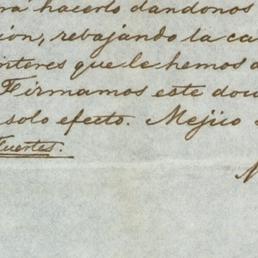 rá hacerlo dandonos
ión, rebajando la ca
interes que le hemos d
Firmamos este docu
solo efecto. Mejico
Fuertes.